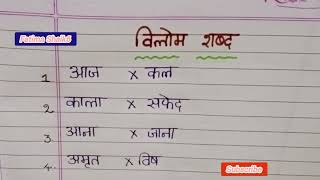 Fatima Shaikh
विलोम शब्द
1. आज x कल
2. काला x सफेद
3. आना x जाना
4. अमृत x विष
Subscribe